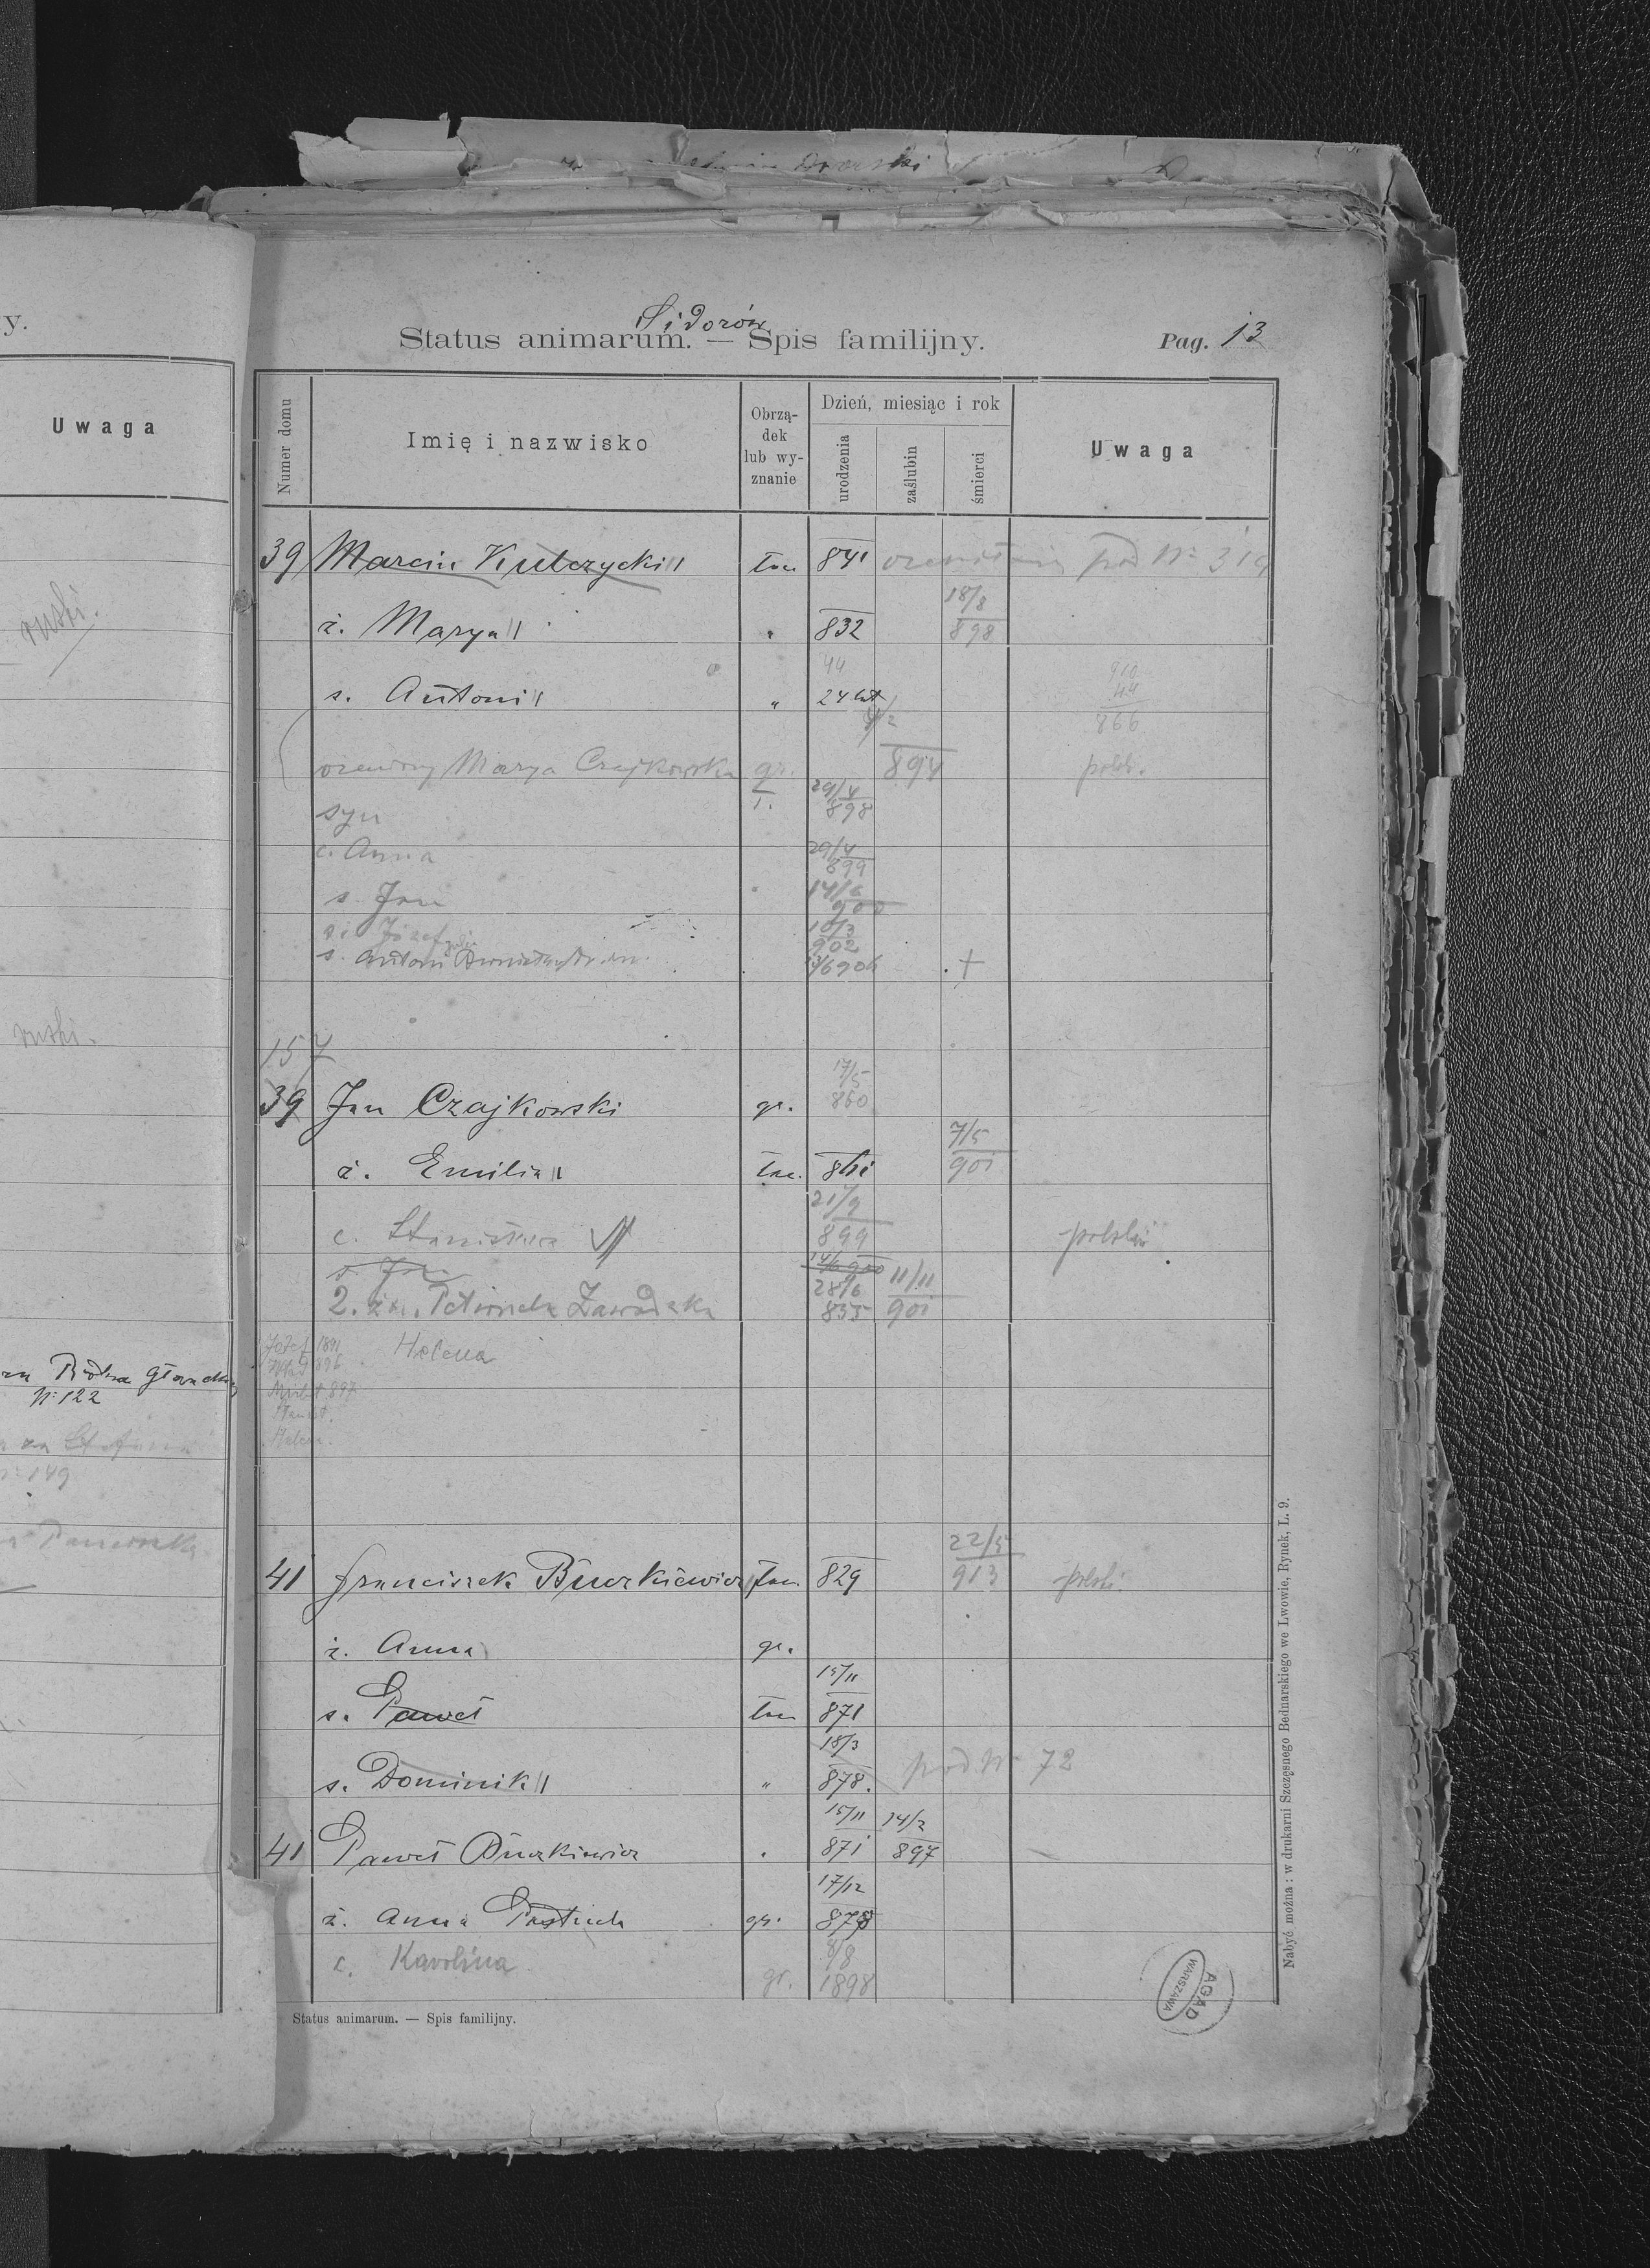 Sidorów
Status animarum. — Spis familijny. Pag. 13
y.
Uwaga
Numer domu
Imię i nazwisko
Obrzą-
dek
lub wy-
znanie
Dzień, miesiąc i rok
urodzenia
zaślubin
śmierci
Uwaga
39 Marcin Kulczycki łac 841 pod No 319
ż. Marya " 832 18/8 898
44
s. Antoni " 24 lat
910
44
866
ożeniony Marya Czajkowska gr. 894 polsk.
syn ł. 29/4 898
c. Anna 29/4 899
s. Jan 14/6 900
s. Józef 10/3 902
s. Antoni 906 +
ruski.
ruski.
157
39 Jan Czajkowski gr. 17/5 860
ż. Emilia łac. 861 7/5 901
c. Stanisława 21/9 899 polski
s. Jan 14/6 900
2. żon. Petronela Zawadzka 28/6 855 11/11 901
Józef 1891
Helena
896
897
Helen.
No 122
149
41 Franciszek Burkiewicz łac 829 22/5 913 polski.
ż. Anna gr.
s. Paweł łac 15/11 871
s. Dominik " 18/3 878. pod N 72
41 Paweł Burkiewicz 15/11 871 14/2 897
ż. Anna gr. 17/12 878
c. Karolina gr. 8/8 1898
Status animarum. — Spis familijny.
Nabyć można: w drukarni Szczęsnego Bednarskiego we Lwowie, Rynek, L. 9.
AGAD
WARSZAWA